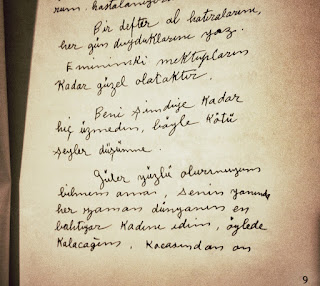 Bir defter al hatıralarını,
her gün duyduklarını yaz.
Eminimki mektupların
kadar güzel olacaktır.
Beni şimdiye kadar
hiç üzmedin, böyle kötü
şeyler düşünme.
Güler yüzlü olurmuyum
bilmem ama, senin yanında
her zaman dünyanın en
bahtiyar kadını idim, öylede
kalacağım, kocasından en
9